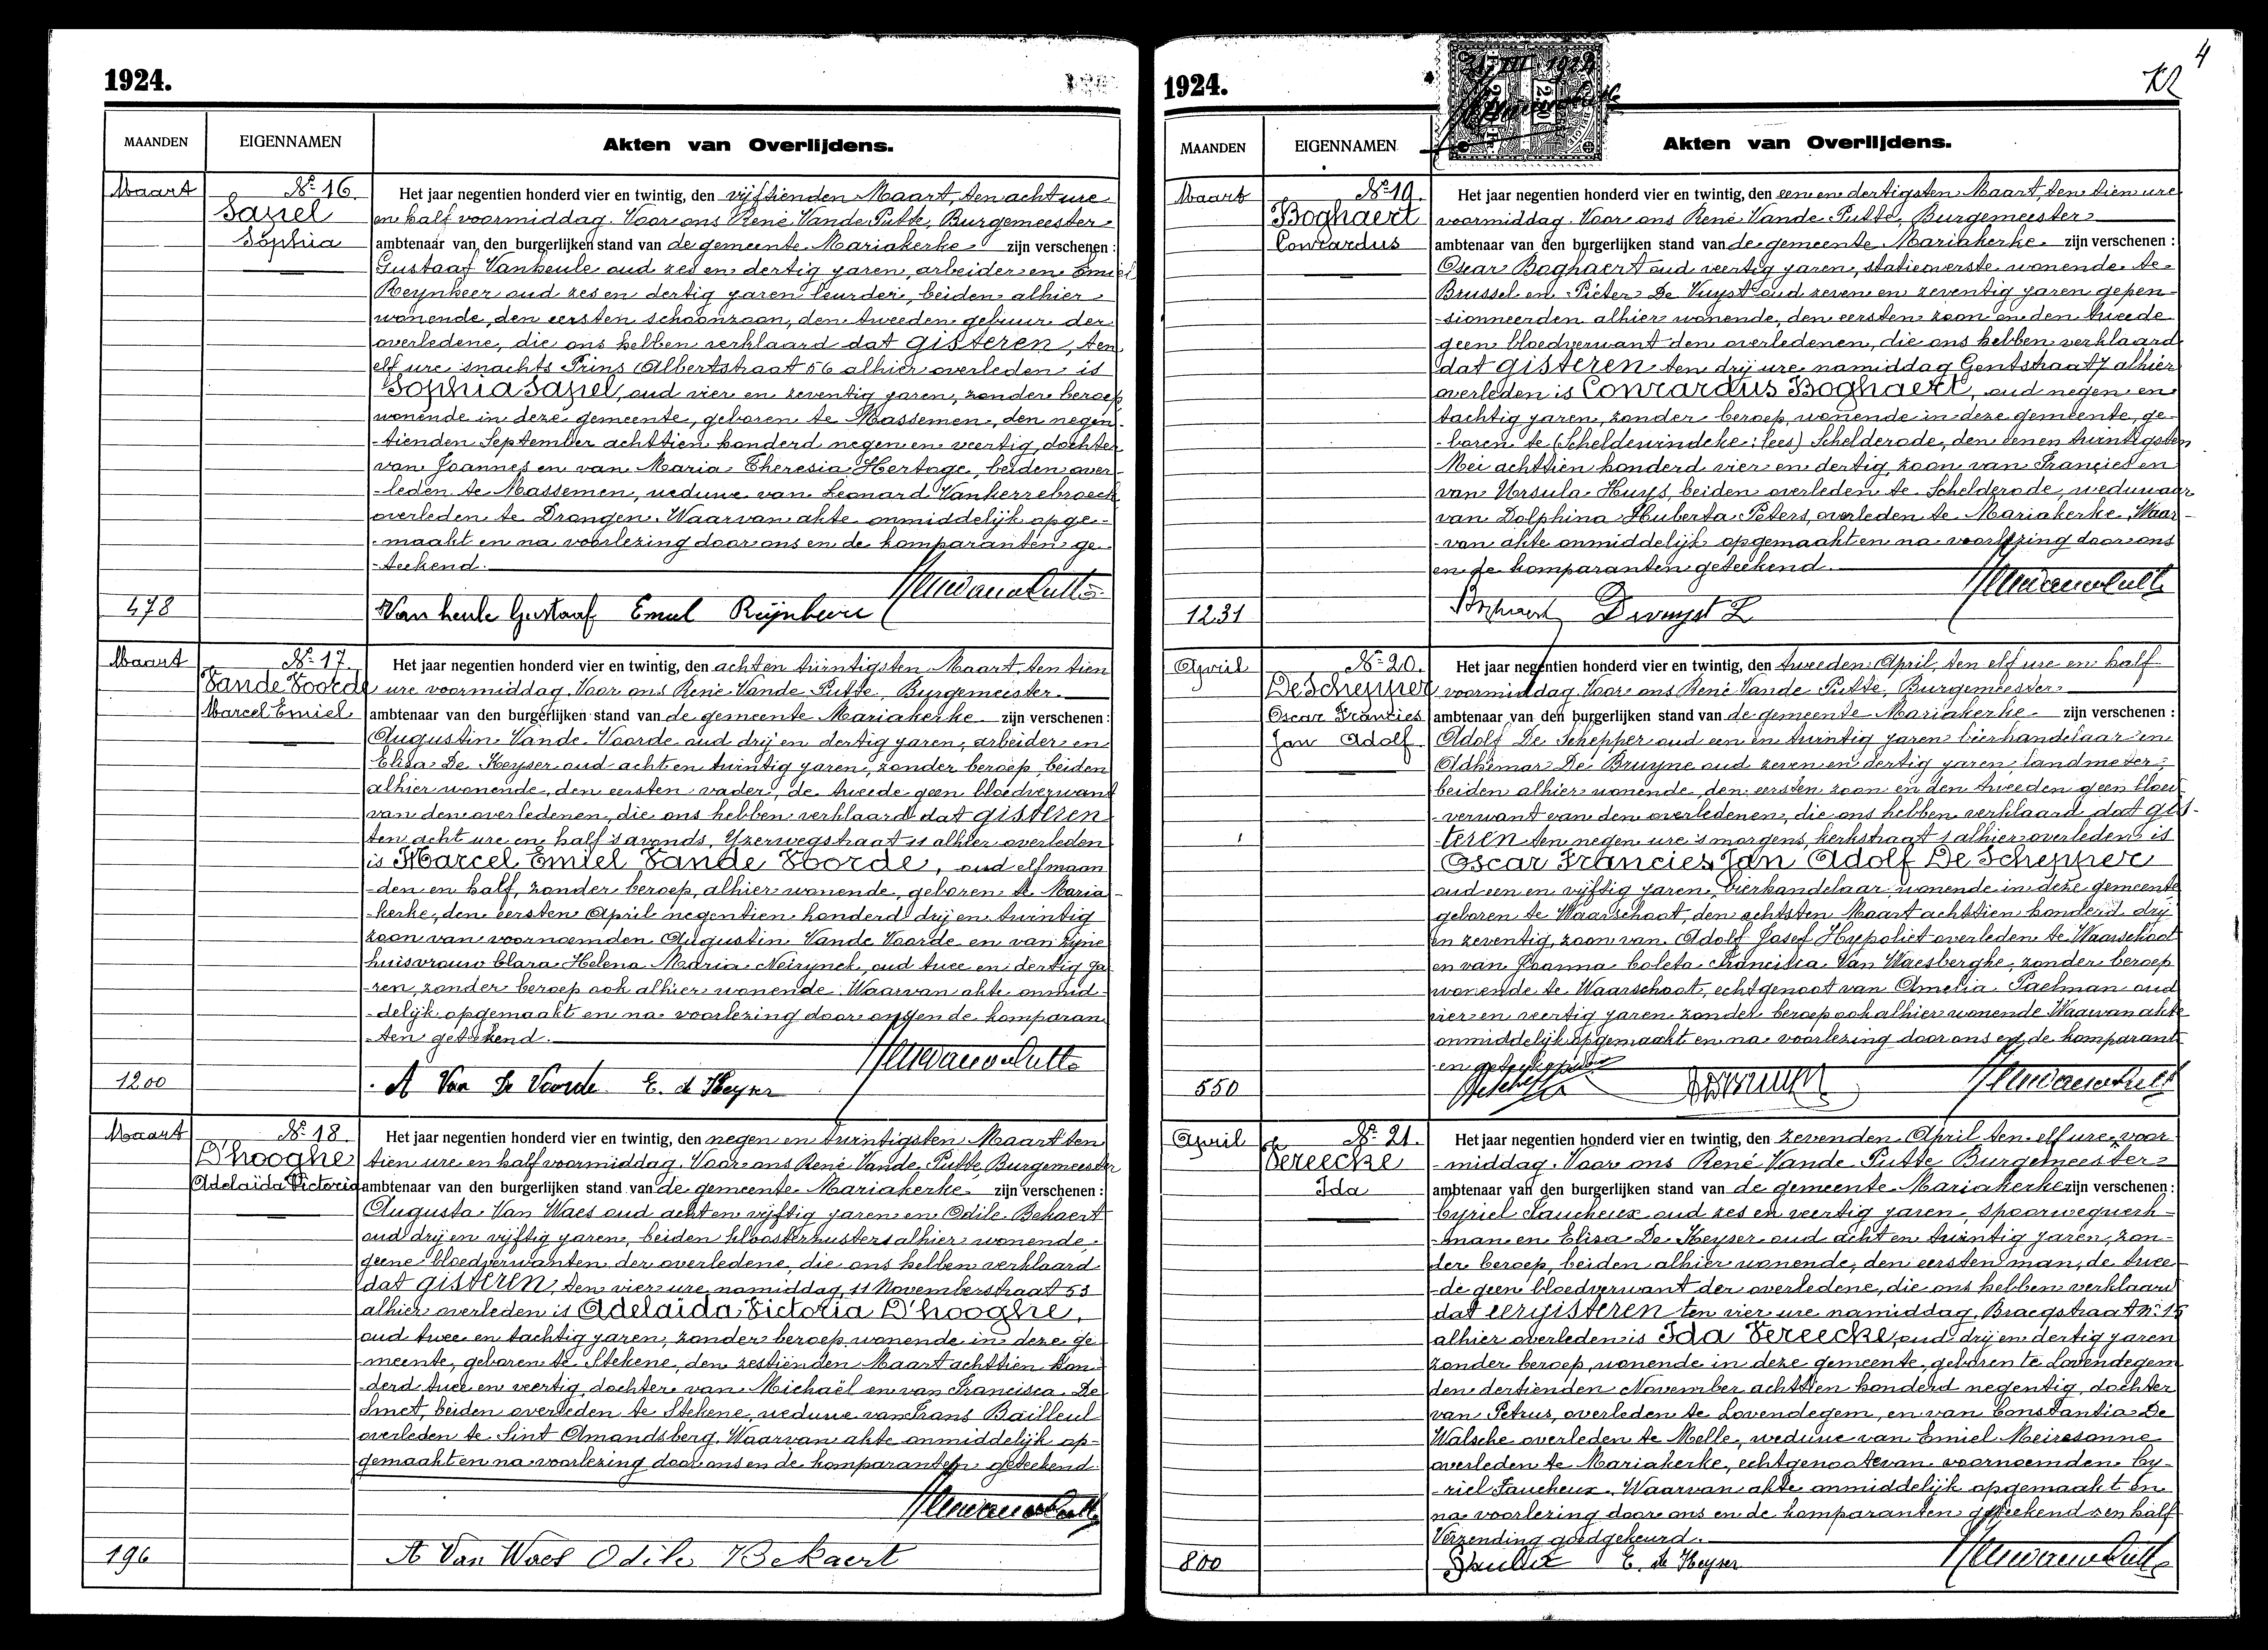 1924.
MAANDEN
EIGENNAMEN
Akten van Overlijdens.
Maart
Nr 16
Sapel
Sophia
Het jaar negentien honderd vier en twintig, den vijftienden Maart, ten acht ure
en half voormiddag. Voor ons René Vande Putte, Burgemeester
ambtenaar van den burgerlijken stand van de gemeente Mariakerke zijn verschenen:
Gustaaf Vanheule oud zes en dertig jaren, arbeider en Emiel
Reynheer oud zes en dertig jaren leurder, beiden alhier
wonende, den eersten schoonzoon, den tweeden gebuur der
overledene, die ons hebben verklaard dat gisteren, ten
elf ure 's nachts Prins Albertstraat 56 alhier overleden is
Sophia Sapel, oud vier en zeventig jaren, zonder beroep
wonende in deze gemeente, geboren te Massemen, den negen-
-tienden September achttien honderd negen en veertig, dochter
van Joannes en van Maria Theresia Hertoge, beiden over-
-leden te Massemen, weduwe van Leonard Vanherrebroeck
overleden te Drongen. Waarvan akte onmiddelijk opge-
-maakt en na voorlezing door ons en de komparanten ge-
-teekend.
478
Van heule Gustaaf Emiel Reijnheir
Maart
Nr 17
Vande Voorde
Marcel Emiel
Het jaar negentien honderd vier en twintig, den achten twintigsten Maart, ten tien
ure voormiddag. Voor ons René Vande Putte, Burgemeester
ambtenaar van den burgerlijken stand van de gemeente Mariakerke zijn verschenen:
Augustin Vande Voorde oud drij en dertig jaren, arbeider en
Elisa De Keyser oud acht en twintig jaren, zonder beroep, beiden
alhier wonende, den eersten vader, de tweede geen bloedverwant
van den overledenen, die ons hebben verklaard dat gisteren
ten acht ure en half 's avonds, Yzerwegstraat 11 alhier overleden
is Marcel Emiel Vande Voorde, oud elf maan
-den en half, zonder beroep, alhier wonende, geboren te Maria-
-kerke, den eersten April negentien honderd drij en twintig
zoon van voornoemden Augustin Vande Voorde en van zijne
huisvrouw Clara Helena Maria Neirynck, oud twee en dertig ja-
-ren, zonder beroep ook alhier wonende. Waarvan akte onmid-
-delijk opgemaakt en na voorlezing door ons en de komparan
-ten geteekend.
1200
A Van De Voorde E. de Keyser
Maart
Nr 18
D'hooghe
Adelaïda Victoria
Het jaar negentien honderd vier en twintig, den negen en twintigsten Maart ten
tien ure en half voormiddag. Voor ons René Vande Putte, Burgemeester
ambtenaar van den burgerlijken stand van de gemeente Mariakerke zijn verschenen:
Augusta Van Waes oud acht en vijftig jaren en Odile Bekaert
oud drij en vijftig jaren, beiden kloosterzusters alhier wonende
geene bloedverwanten der overledene, die ons hebben verklaard
dat gisteren, ten vier ure namiddag, 11 Novemberstraat 53
alhier overleden is Adelaïda Victoria D'hooghe,
oud twee en tachtig jaren, zonder beroep wonende in deze ge-
meente, geboren te Stekene, den zestienden Maart achttien hon-
derd twee en veertig, dochter van Michaël en van Francisca De
Smet, beiden overleden te Stekene, weduwe van Frans Bailleul
overleden te Sint Amandsberg. Waarvan akte onmiddelijk op-
gemaakt en na voorlezing door ons en de komparanten geteekend.
196
A Van Waes Odile Bekaert
1924.
4
MAANDEN
EIGENNAMEN
Akten van Overlijdens.
Maart
Nr 19.
Boghaert
Conrardus
Het jaar negentien honderd vier en twintig, den eenen dertigsten Maart, ten tien ure
voormiddag. Voor ons René Vande Putte, Burgemeester
ambtenaar van den burgerlijken stand van de gemeente Mariakerke zijn verschenen:
Oscar Boghaert oud veertig jaren, statieoverste wonende te
Brussel en Pieter De Vuyst oud zeven en zeventig jaren gepen-
-sionneerden alhier wonende, den eersten zoon en den tweede
geen bloedverwant den overledenen, die ons hebben verklaard
dat gisteren ten drij ure namiddag Gentstraat 7 alhier
overleden is Conrardus Boghaert, oud negen en
tachtig jaren, zonder beroep, wonende in deze gemeente, ge-
-boren te (Scheldewindeke: lees) Schelderode, den eenen twintigsten
Mei achttien honderd vier en dertig, zoon van Francies en
van Ursula Huys, beiden overleden te Schelderode, weduwaar
van Dolphina Huberta Peters, overleden te Mariakerke. Waar-
-van akte onmiddelijk opgemaakt en na voorlezing door ons
en de komparanten geteekend.
1231
Boghaert
April
Nr 20.
De Schepper
Oscar Francies
Jan Adolf
Het jaar negentien honderd vier en twintig, den tweeden April, ten elf ure en half
voormiddag. Voor ons René Vande Putte, Burgemeester
ambtenaar van den burgerlijken stand van de gemeente Mariakerke zijn verschenen:
Adolf De Schepper oud een en twintig jaren bierhandelaar en
Adhemar De Bruyne oud zeven en dertig jaren, landmeter,
beiden alhier wonende, den eersten zoon en den tweeden geen bloed-
-verwant van den overledenen, die ons hebben verklaard dat gis-
-teren ten negen ure 's morgens, kerkstraat 1 alhier overleden is
Oscar Francies Jan Adolf De Schepper
oud een en vijftig jaren, bierhandelaar wonende in deze gemeente
geboren te Waarschoot, den achtsten Maart achttien honderd drij
en zeventig, zoon van Adolf Josef Hypoliet overleden te Waarschoot
en van Joanna Coleta Francisca Van Waesberghe, zonder beroep
wonende te Waarschoot, echtgenoot van Amelia Paelman oud
vier en veertig jaren zonder beroep ook alhier wonende. Waarvan akte
onmiddelijk opgemaakt en na voorlezing door ons en de komparant
en geteekend
550
April
Nr 21.
Vereecke
Ida
Het jaar negentien honderd vier en twintig, den zevenden April ten elf ure voor
-middag. Voor ons René Vande Putte Burgemeester
ambtenaar van den burgerlijken stand van de gemeente Mariakerke zijn verschenen:
Cyriel Faucheux oud zes en veertig jaren, spoorwegwerk-
-man en Elisa De Keyser oud acht en twintig jaren, zon-
der beroep, beiden alhier wonende, den eersten man, de twee
-de geen bloedverwant der overledene, die ons hebben verklaard
dat eergisteren ten vier ure namiddag, Braegstraat Nr 15
alhier overleden is Ida Vereecke, oud drij en dertig jaren
zonder beroep, wonende in deze gemeente, geboren te Lovendegem
den dertienden November achttien honderd negentig, dochter
van Petrus, overleden te Lovendegem, en van Constantia De
Walsche overleden te Melle, weduwe van Emiel Meiresonne
overleden te Mariakerke, echtgenoote van voornoemden Cy-
-riel Faucheux. Waarvan akte onmiddelijk opgemaakt en
na voorlezing door ons en de komparanten geteekend en half
Verzending goedgekeurd.
800
E. de Keyser